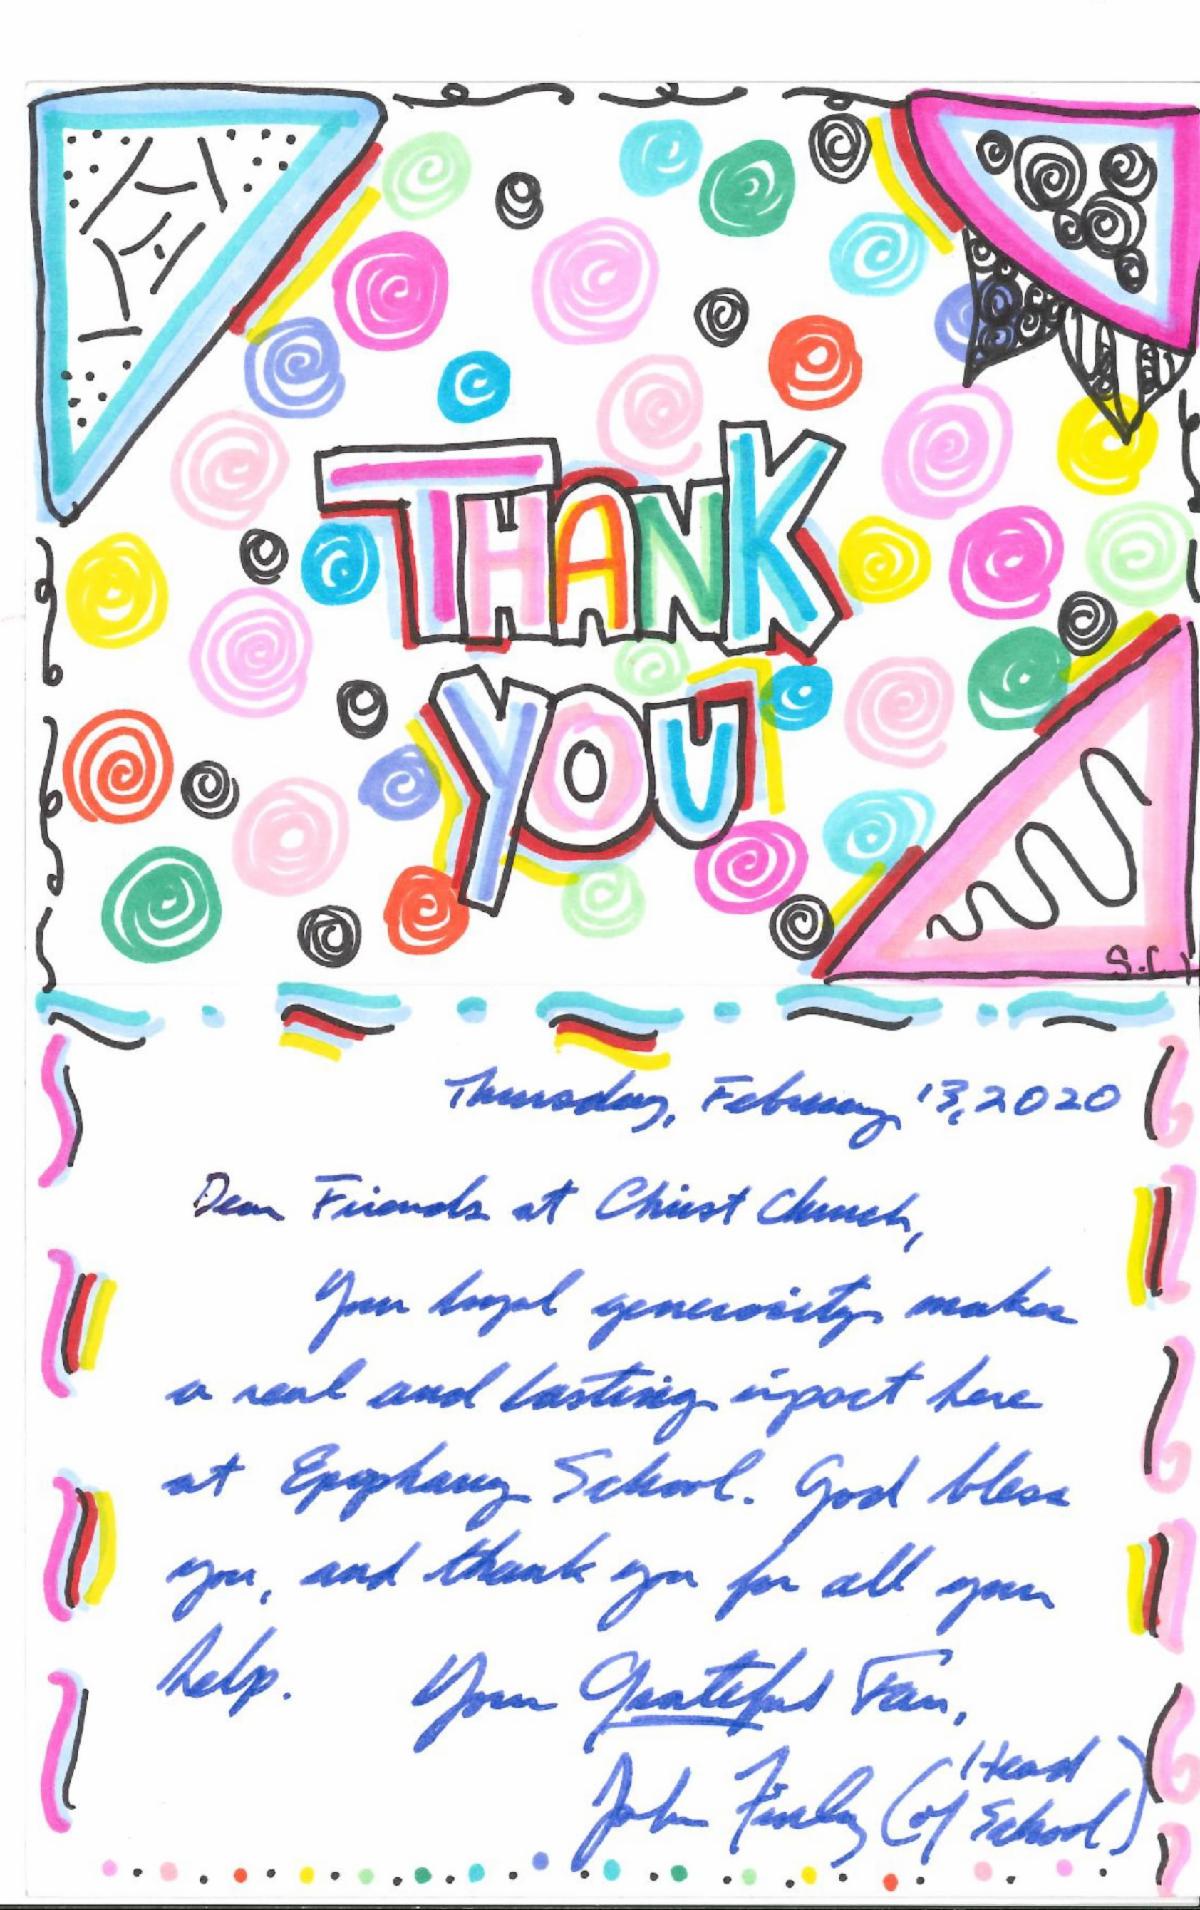 THANK
YOU
Thursday, February 13, 2020
Dear Friends at Christ Church,
Your loyal generosity makes
a real and lasting impact here
at Epiphany School. God bless
you, and thank you for all your
help. Your Grateful Fan,
John Finley (Head
of School)